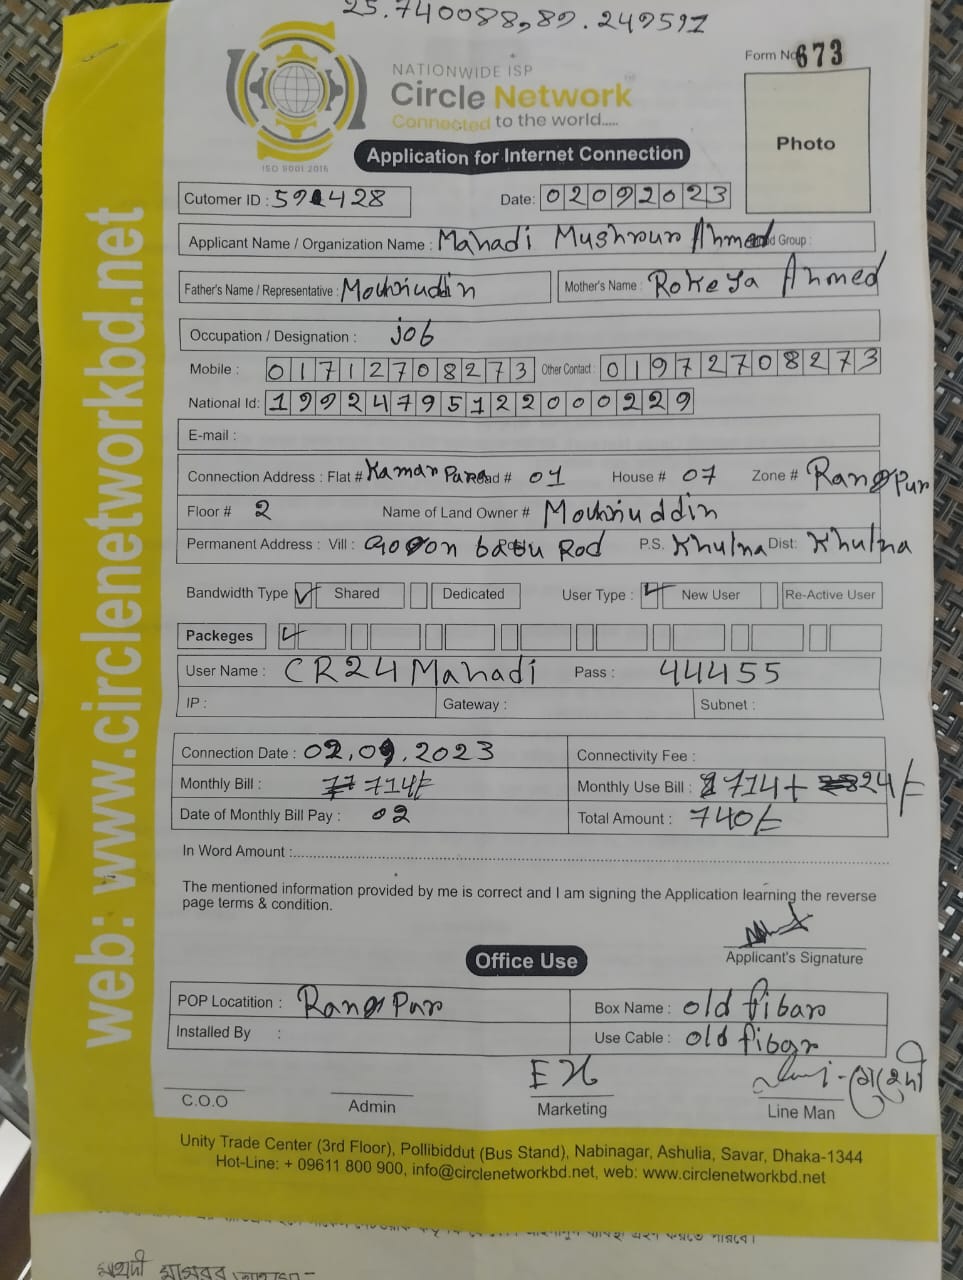 25.740088,89.249591
Form No 673
NATIONWIDE ISP
Circle Network
Connected to the world.....
ISO 9001:2015
Photo
Application for Internet Connection
Cutomer ID : 591428 Date: 02092023
Applicant Name / Organization Name : Mahadi Ahmed Group :
Father's Name / Representative : Mother's Name : Rokeya Ahmed
Occupation / Designation : job
Mobile : 01712708273 Other Contact : 01972708273
National Id: 19924795122000229
E-mail :
Connection Address : Flat # Kamar Para Road # 01 House # 07 Zone # Rangpur
Floor # 2 Name of Land Owner #
Permanent Address : Vill : babu Rod P.S. Khulna Dist: Khulna
Bandwidth Type ✓ Shared Dedicated User Type : ✓ New User Re-Active User
Packeges ✓
User Name : CR24Mahadi Pass : 44455
IP : Gateway : Subnet :
Connection Date : 02.09.2023 Connectivity Fee :
Monthly Bill : 714/- Monthly Use Bill : 714+ 24/-
Date of Monthly Bill Pay : 02 Total Amount : 740/-
In Word Amount :
The mentioned information provided by me is correct and I am signing the Application learning the reverse
page terms & condition.
Applicant's Signature
Office Use
POP Locatition : Rangpur Box Name : old fibar
Installed By : Use Cable : old fibar
C.O.O Admin Marketing Line Man
Unity Trade Center (3rd Floor), Pollibiddut (Bus Stand), Nabinagar, Ashulia, Savar, Dhaka-1344
Hot-Line: + 09611 800 900, info@circlenetworkbd.net, web: www.circlenetworkbd.net
web: www.circlenetworkbd.net